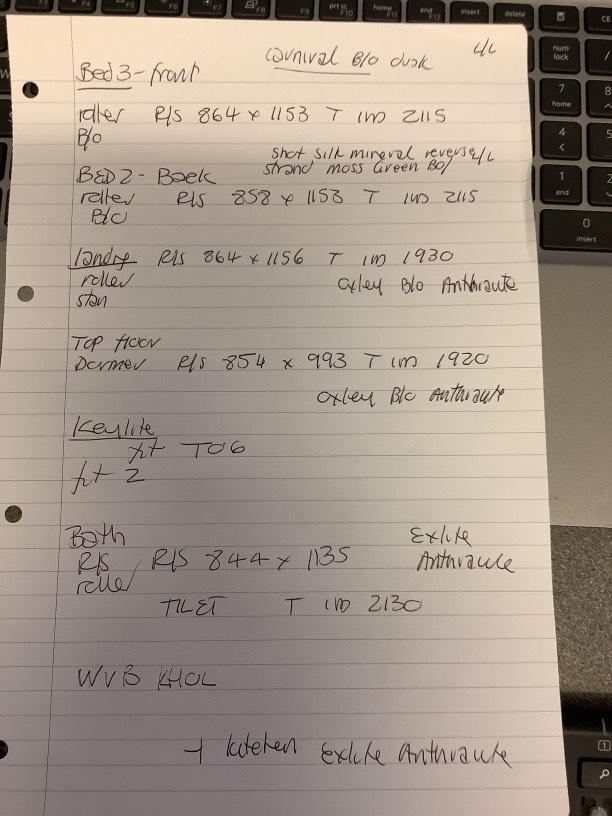 Carnival B/o dusk
Bed 3 - front
roller R/S 864 x 1153 T IM 2115
B/o
shot silk mineral reverse
strand moss Green BO/
BED 2 - Back
roller R/S 858 x 1153 T IM 2115
B/O
landg R/S 864 x 1156 T IM 1930
roller
Oxley B/o Anthracite
Top floor
Dormer R/S 854 x 993 T IM 1920
Oxley B/o Anthracite
Keylite
T06
2
Bath
Exlite
R/S R/S 844 x 1135 Anthracite
roller
T IM 2130
WVB
+ kitchen Exlite Anthracite
prt sc
F10
home
end
insert
delete
num
lock
7
home
8
4
5
1
end
2
0
insert